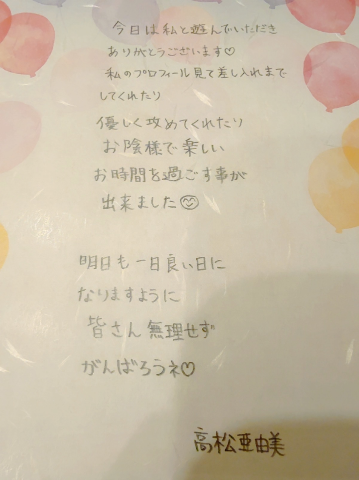 今日は私と遊んでいただき
ありがとうございます♡
私のプロフィール見て差し入れまで
してくれたり
優しく攻めてくれたり
お陰様で楽しい
お時間を過ごす事が
出来ました😊
明日も一日良い日に
なりますように
皆さん無理せず
がんばろうネ♡
高松亜由美